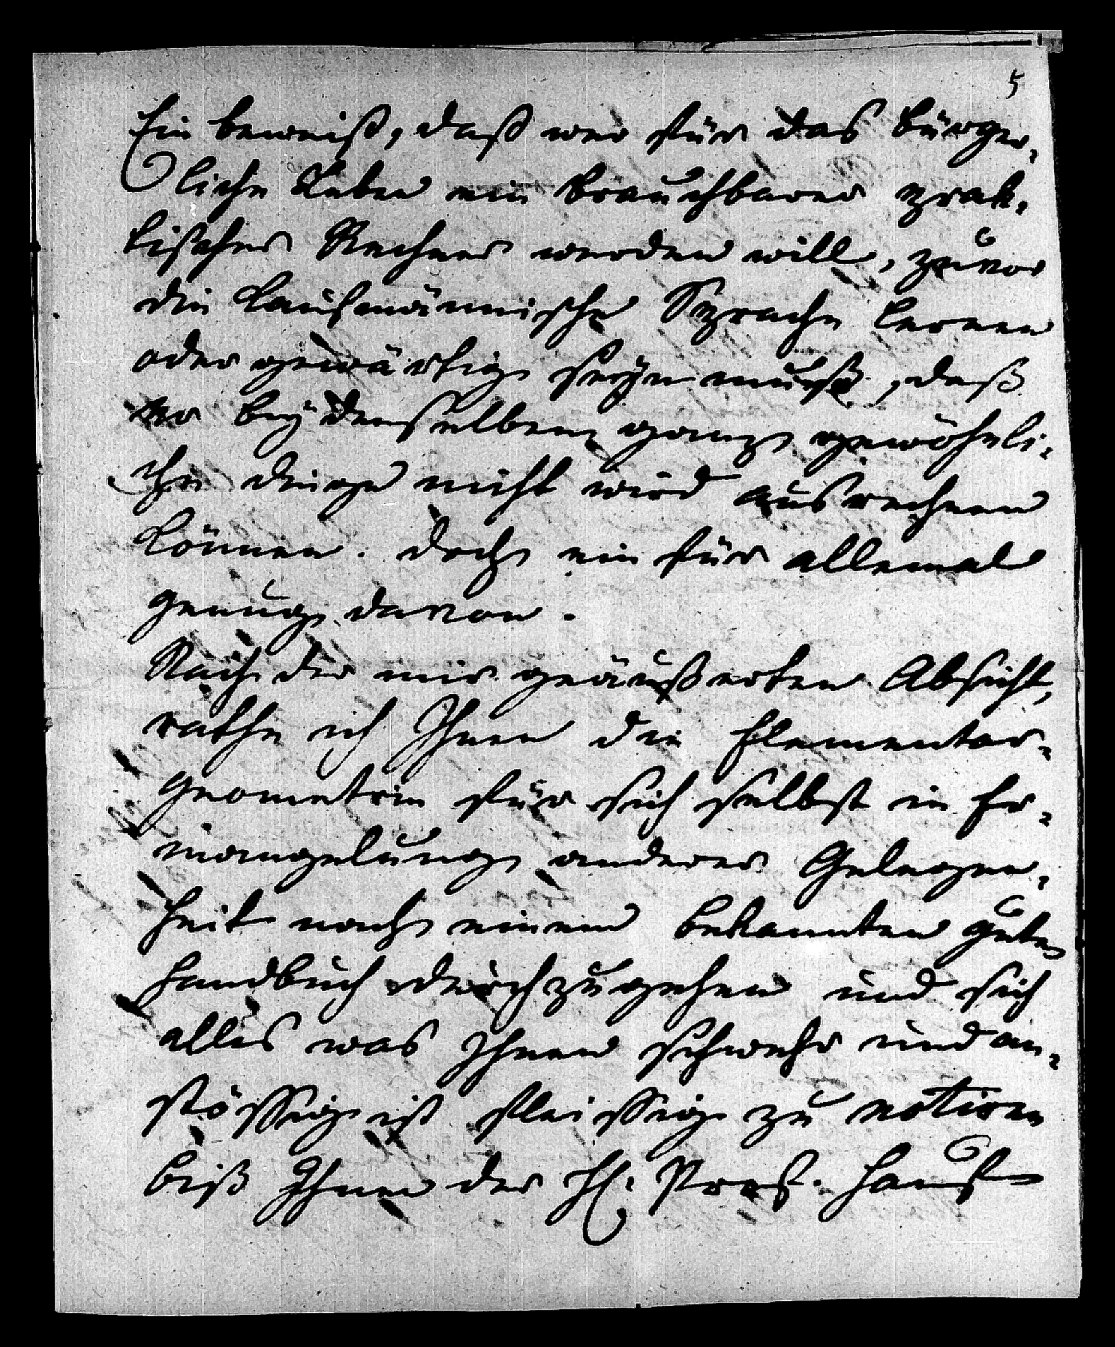 5
Ein beweiß, daß wer für das bürger-
liche Leben ein brauchbarer prak-
tischer Rechner werden will, zuvor
die kaufmännische Sprache lernen
oder gewärtig seyn muß, daß
er bey denselben ganz gewöhnli-
che dinge nicht wird ausrechnen
können. doch ein für allemal
genug davon.
Nach der mir geäußerten Absicht,
rathe ich Ihnen die Elementar-
geometrie für sich selbst in Er-
mangelung anderer Gelegen-
heit nach einem bekannten guten
handbuch durchzugehen und sich
alles was Ihnen schwehr und an-
stössig ist fleissig zu notiren
biß Ihnen der H. Prof. Hauff